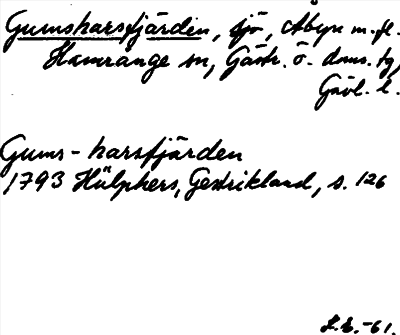 Gumsharsfjärden, sjö, Åbyn m.fl.
Hamrange sn, Gästr. ö. doms. tg,
Gävl. l.
Gums-harsfjärden
1793 Hülphers, Gestrikland, s. 126
L.E. -61.